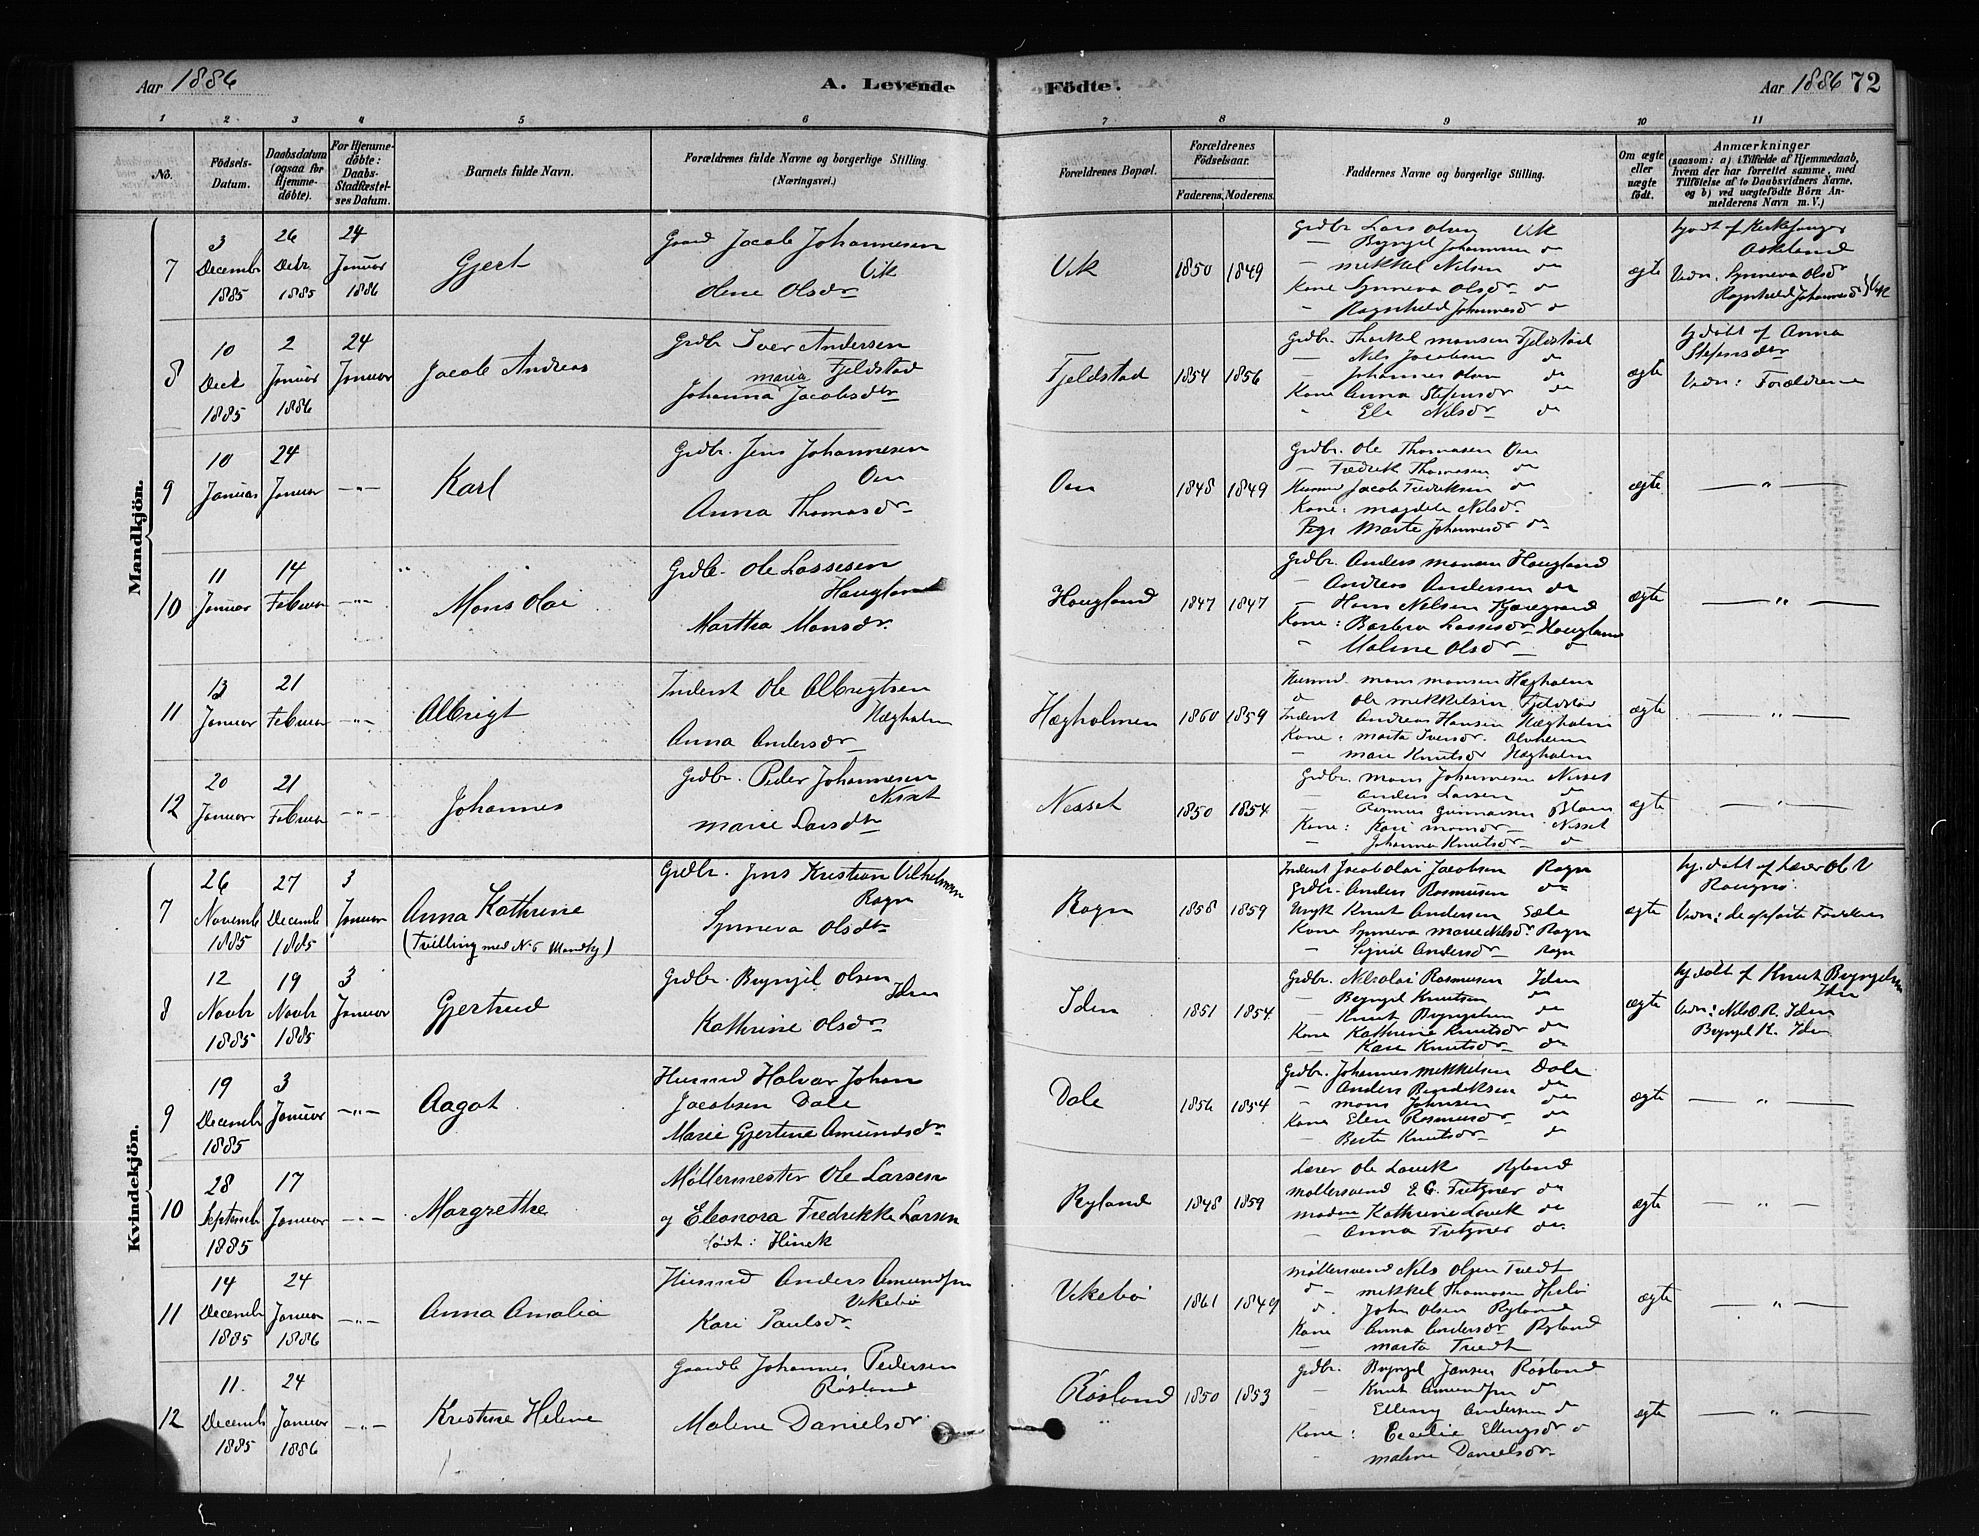 Aar 1886
A. Levende
Födte.
Aar 1886 72
1 2 3 4 5 6 7 8 9 10 11
No.
Födsels-
Datum.
Daabsdatum
(ogsaa for
Hjemme-
döbte).
For Hjemme-
döbte:
Daabs-
Stadfæstel-
ses Datum.
Barnets fulde Navn.
Forældrenes fulde Navne og borgerlige Stilling.
(Næringsvei.)
Forældrenes Bopæl.
Forældrenes
Födselsaar.
Faderens. Moderens.
Faddernes Navne og borgerlige Stilling.
Om ægte
eller
uægte
födt.
Anmærkninger
(saasom: a) i Tilfælde af Hjemmedaab,
hvem der har forrettet samme, med
Tilföielse af to Daabsvidners Navne,
og b) ved uægtefödte Börn An-
melderens Navn m. V.)
Mandkjön.
7
3
Decembr
1885
26
Debr.
1885
24
Januar
1886
Gjert
Gaard Jacob Johannesen
Vik
Olene Olsdr
Vik
1850 1849
Grdbr Lars Olsen Vik
— Bryngel Johannesen do
— Mikkel Nilsen do
Kone Synneva Olsdr do
— Ragnhild Johannesdr do
ægte
hjdøbt af Kirkesanger
Askeland
Vidn. Synneva Olsdr
Ragnhild Johannesdr } Vik
8
10
Decb
1885
2
Januar
1886
24
Januar
Jacob Andreas
Grdbr Iver Andersen
Fjeldstad
Johanna Maria Jacobsdtr
Fjeldstad
1854 1856
Grdbr. Thorkel Monsen Fjeldstad
— Nils Jacobsen do
— Johannes Olsen do
Kone Anna Stefensdr do
" Eli Nilsdr do
ægte
hj.døbt af Anna
Stefensdr
Vidn: Forældrene
9
10
Januar
24
Januar
—"—
Karl
Grdbr. Jens Johannesen
Oen
Anna Thomasdr
Oen
1848 1849
Grdbr. Ole Thomasen Oen
— Fredrik Thomasen do
Husmd Jacob Fredriksen do
Kone: Magdela Nilsdr
Pige Marte Johannesdr do
ægte
— " —
10
11
Januar
14
Februar
—"—
Mons Olai
Grdbr. Ole Lassesen
Haugland
Martha Monsdr.
Haugland
1847 1847
Grdbr. Anders Monsen Haugland
— Andreas Andersen do
— Hans Nilsen Kjæregaard
Kone: Barbera Lassesdr Haugland
— Malene Olsdr do
ægte
— " —
11
13
Januar
21
Februar
—"—
Albrigt
Inderst Ole Albrigtsen
Hægholm
Anna Andersdr
Hægholmen
1860 1859
Husmd Mons Monsen Hægholm
do Ole Mikkelsen Fjeldstad
Inderst Andreas Hansen Hægholm
Kone: Marta Iversdr. Alvheim
— Mari Knutsdr Hægholm
ægte
— " —
12
20
Januar
21
Februar
—"—
Johannes
Grdbr. Peder Johannesen
Nesset
Marie Larsdtr
Nesset
1850 1854
Grdbr. Mons Johannesen Nesset
— Anders Larsen do
— Rasmus Gunnarsen
Kone: Kari Monsdr Nesset
— Johanna Knutsdr do
ægte
— " —
Kvindekjön.
7
26
Novembr
1885
27
Decembr
1885
3
Januar
Anna Kathrine
(Tvilling med No 6 Mandkj)
Grdbr. Jens Kristian Vilhelmsen
Rogn
Synneva Olsdtr
Rogn
1858 1859
Inderst Jacob Olai Jacobsen Rogn
Grdbr. Anders Rasmusen do
Ungk Knut Andersen Sæle
Kone Synneva Marie Nilsdr Rogn
— Sigrid Andersdr Rogn
ægte
hj. døbt af Lærer Ob V
Vidn: de opførte Faddere
8
12
Novbr
1885
19
Novbr
1885
3
Januar
Gjertrud
Grdbr. Bryngel Olsen
Iden
Kathrine Olsdr
Iden
1851 1854
Grdbr. Nikolai Rasmusen Iden
— Bryngel Knutsen do
— Knut Bryngelsen do
Kone Kathrine Knutsdr do
— Kari Knutsdr do
ægte
hj.døbt af Knut Bryngelsen
Iden
Vidn: Nils O. R. Iden
Bryngel K. Iden
9
19
Decembr
1885
3
Januar
—"—
Aagot
Husmd Halvar Johan
Jacobsen Dale
Marie Gjertine Amundsdr
Dale
1856 1854
Grdbr. Johannes Mikkelsen Dale
— Anders Bendiksen do
— Mons Johnsen do
Kone Eline Rasmusdr do
— Berte Knutsdr do
ægte
— " —
10
28
Septembr
1885
17
Januar
—"—
Margrethe
Møllermester Ole Larsen
og Eleonora Fredrikke Larsen
født: Hinck
Ryland
1848 1859
Lærer Ole Lavik Ryland
Møllersvend E G. Futzner do
Madam Kathrine Lavik do
— Anna Futzner do
ægte
— " —
11
14
Decembr
1885
24
Januar
1886
—"—
Anna Amalia
Husmd Anders Amundsen
Vikebø
Kari Paulsdr
Vikebø
1861 1849
Møllersvend Nils Olsen Tvedt
d— Mikkel Thomasen
d. John Olsen Ryland
Kone Anna Andersdr Ryland
— Marta Tvedt
ægte
— " —
12
11.
Decembr
1885
24
Januar
1886
—"—
Kristine Helene
Gaardb Johannes Pedersen
Røsland
Malene Danielsdr
Røsland
1850 1853
Grdbr. Bryngel Jansen Røsland
— Knut Amundsen do
— Elling Andersen do
Kone: Cecilie Ellingsdr do
— Malene Danielsdr
ægte
— " —